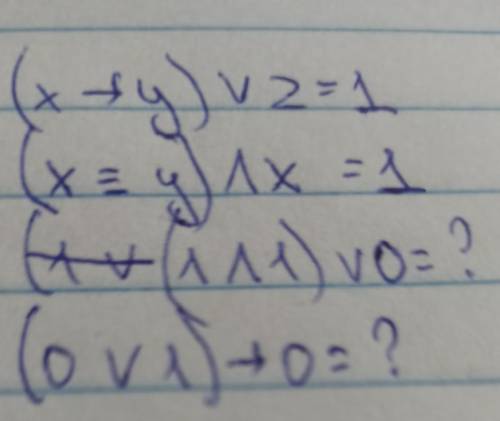 (x → y) ∨ z = 1
(x ≡ y) ∧ x = 1
(1 ∧ 1) ∨ 0 = ?
(0 ∨ 1) → 0 = ?